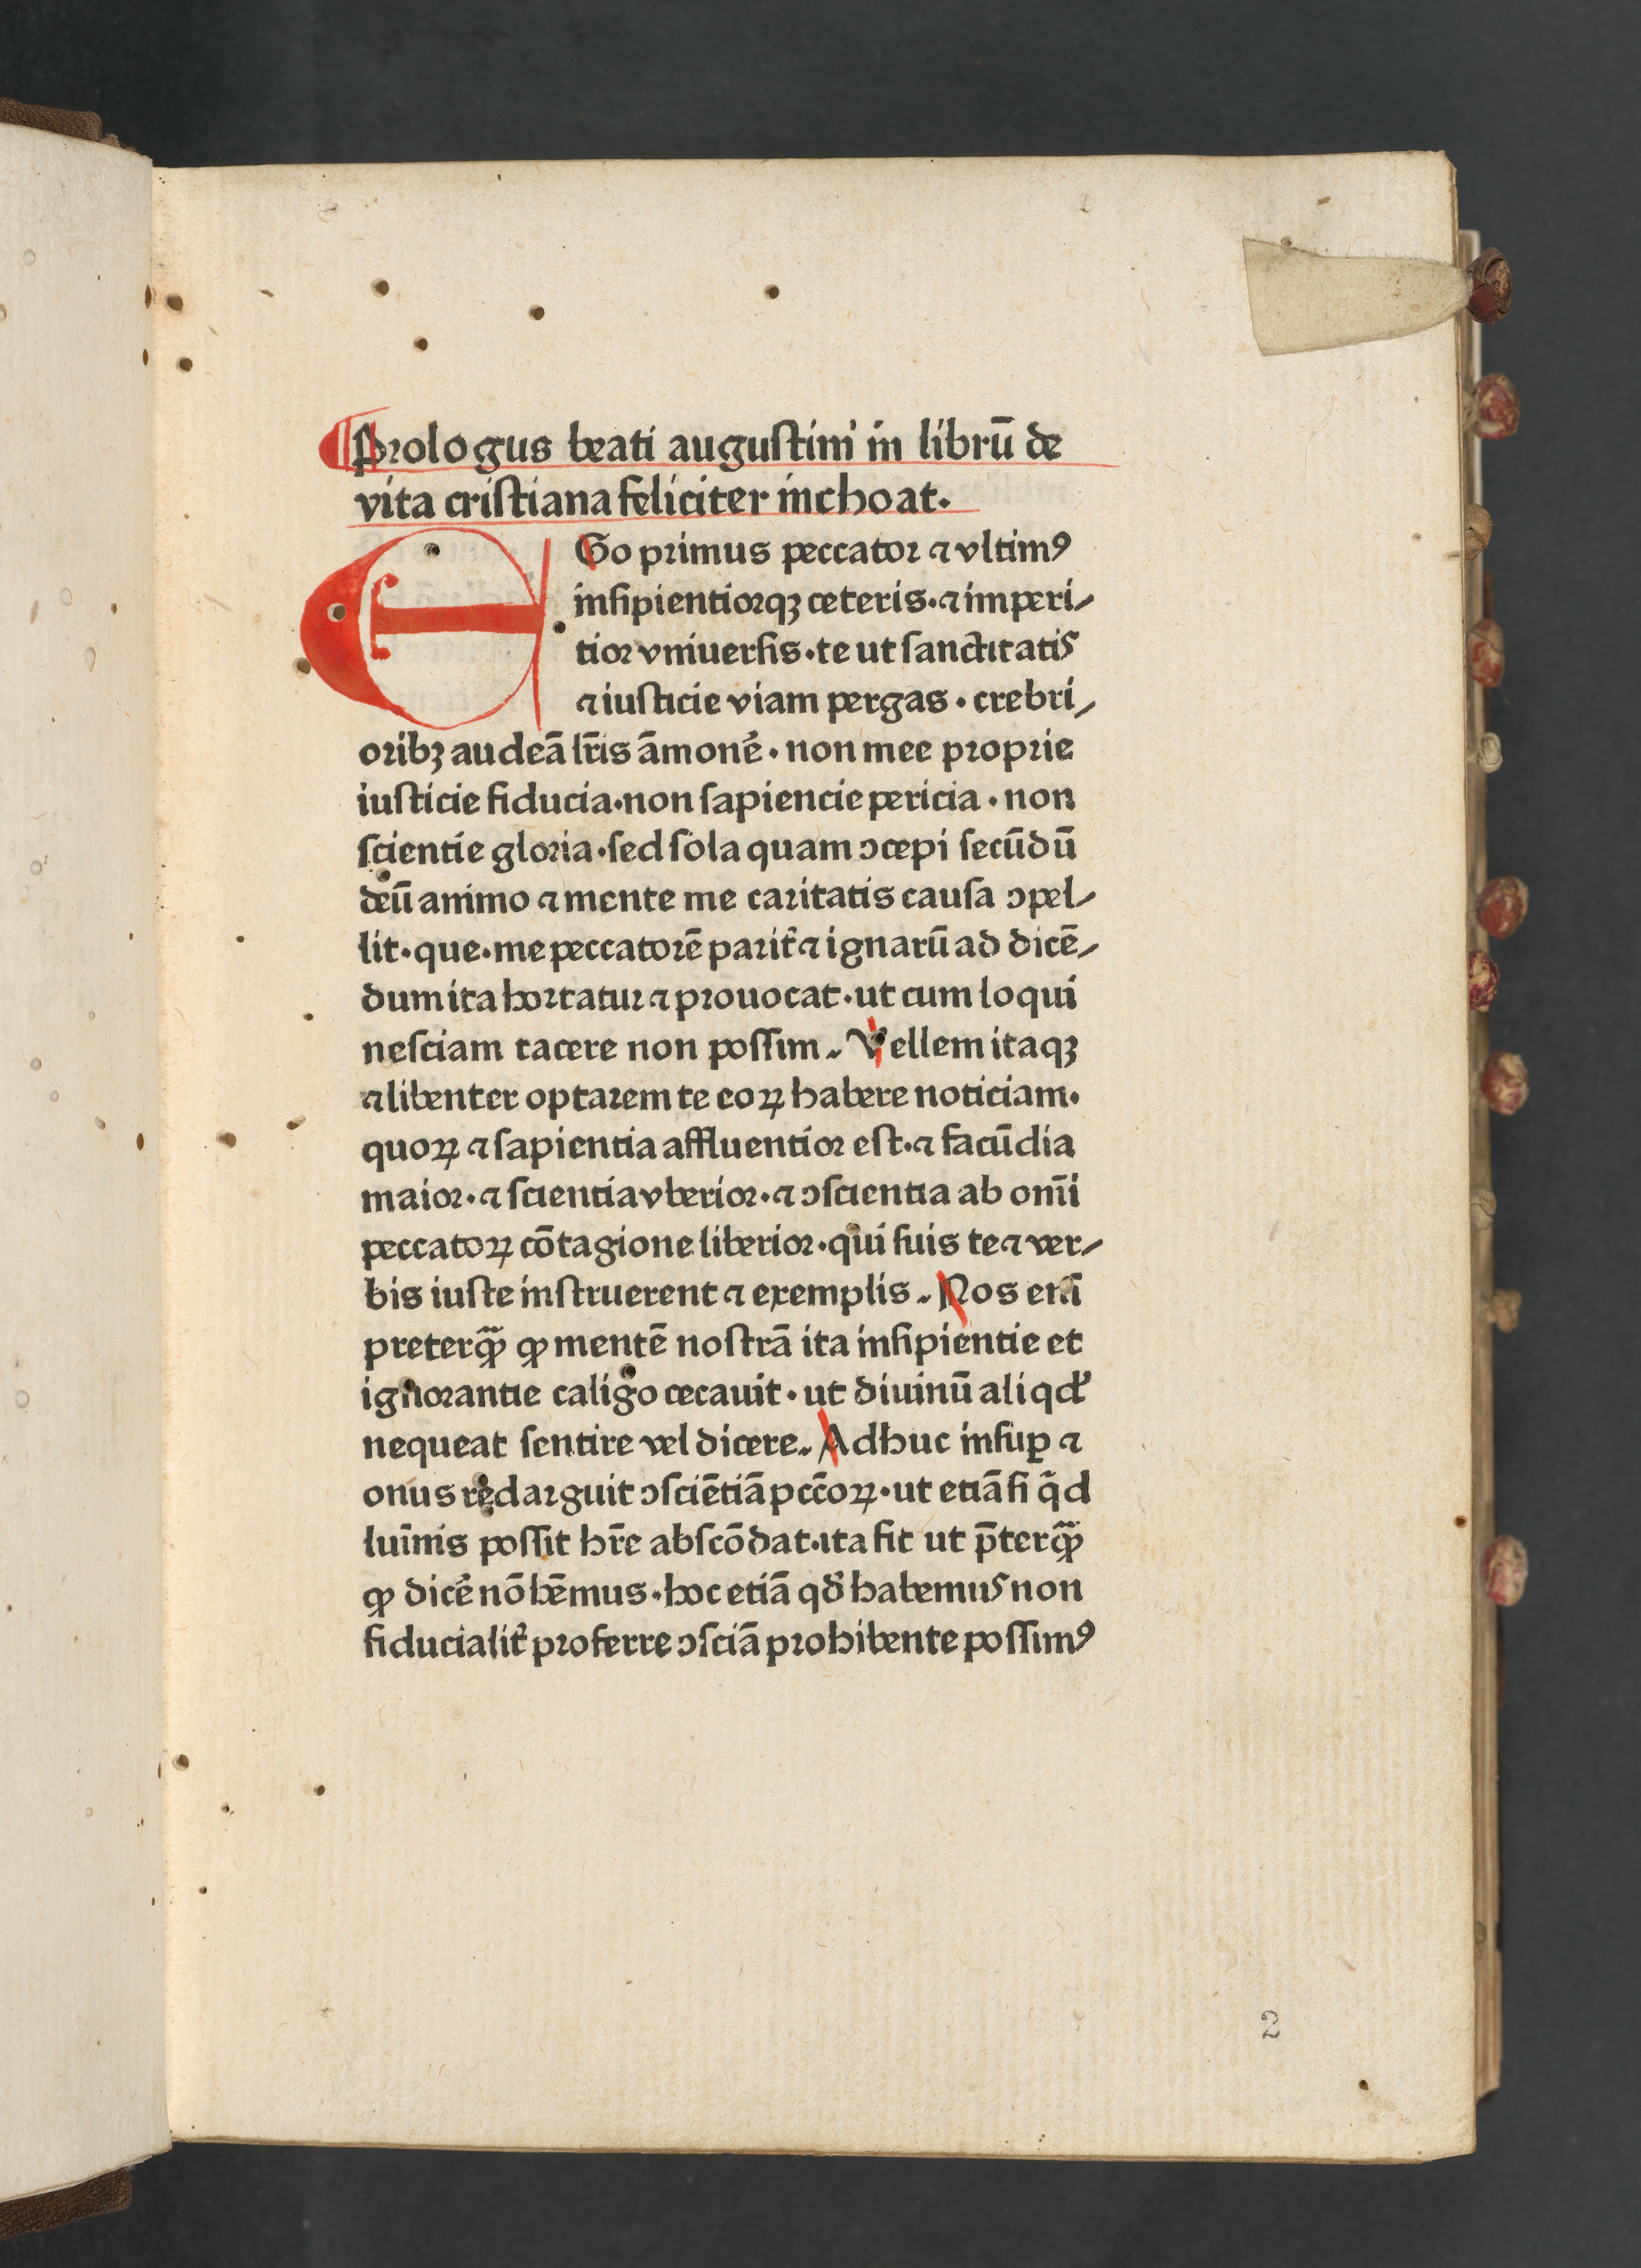 Prologus beati augustini in librū de
vita cristiana feliciter inchoat.
EGo primus peccator ⁊ vltimꝰ
insipientiorqꝫ ceteris·⁊ imperi/
tior vniuersis·te ut sanctitatis
⁊ iusticie viam pergas·crebri/
oribꝫ audeā lr̄is āmonē·non mee proprie
iusticie fiducia·non sapiencie pericia·non
scientie gloria·sed sola quam ↄcepi secūdū
deū animo ⁊ mente me caritatis causa ↄpel/
lit·que·me peccatorē parit̄ ⁊ ignarū ad dicē/
dum ita hortatur ⁊ prouocat·ut cum loqui
nesciam tacere non possim. Vellem itaqꝫ
⁊ libenter optarem te eoꝝ habere noticiam·
quoꝝ ⁊ sapientia affluentior est·⁊ facūdia
maior·⁊ scientia vberior·⁊ ↄscientia ab om̄i
peccatoꝝ cōtagione liberior·qui suis te ⁊ ver/
bis iuste instruerent ⁊ exemplis. Nos eni̅
preterqꝫ̄ ꝙ mentē nostrā ita insipientie et
ignorantie caligo cecauit·ut diuinū aliqd̕
nequeat sentire vel dicere. Adhuc insuꝑ ⁊
onus redarguit ↄsciētiā pccōꝝ·ut etiā si q̄d
lui̅nis possit hr̄e abscōdat·ita fit ut p̄terqꝫ̄
ꝙ dicē nō hēmus·hoc etiā qd̕ habemus non
fiducialit̄ proferre ↄsciā prohibente possimꝰ
2